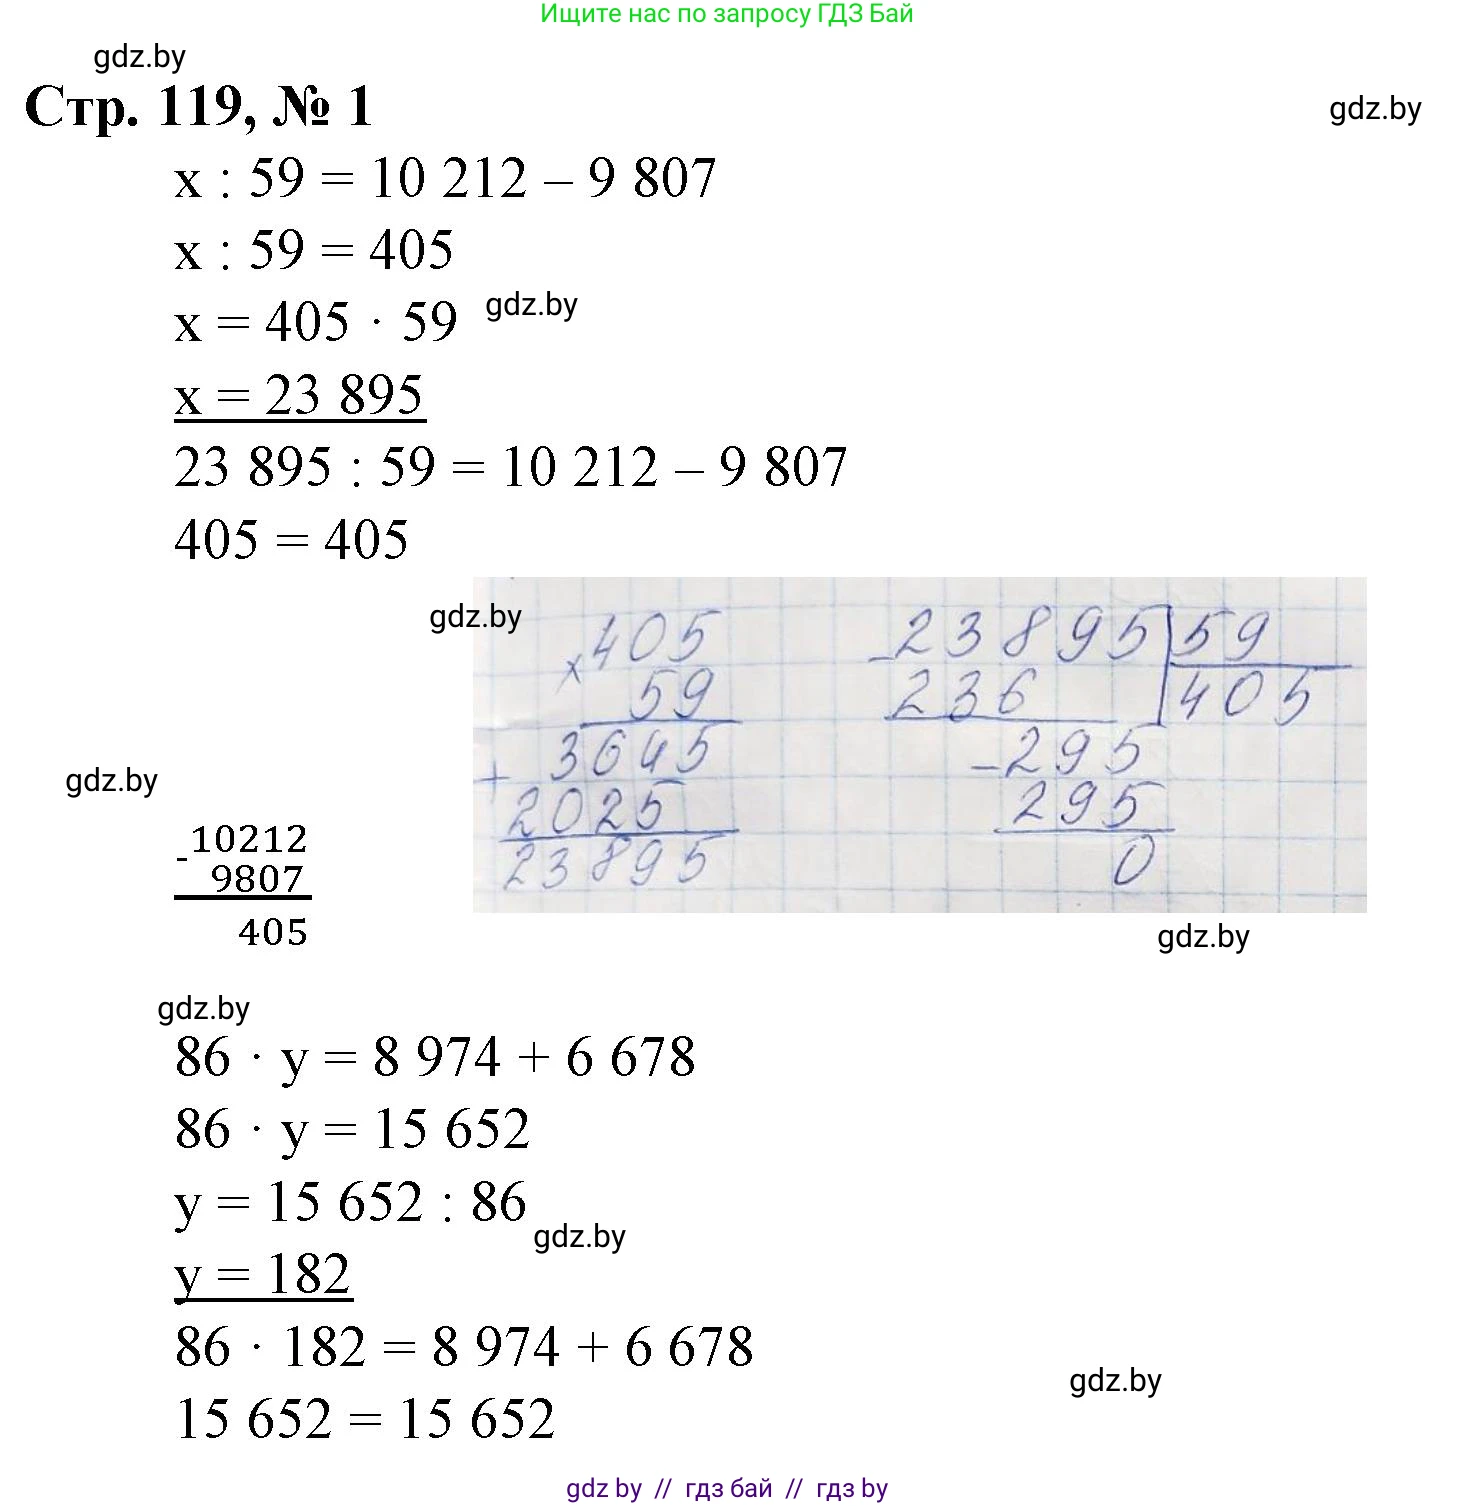 Ищите нас по запросу ГДЗ Бай
gdz.by
Стр. 119, № 1
gdz.by
x : 59 = 10 212 – 9 807
x : 59 = 405
x = 405 · 59
gdz.by
x = 23 895
23 895 : 59 = 10 212 – 9 807
405 = 405
gdz.by
×405
59
3645
+
2025
23895
-23895 59
236 405
-295
295
0
gdz.by
-10212
9807
405
gdz.by
gdz.by
86 · y = 8 974 + 6 678
86 · y = 15 652
y = 15 652 : 86
gdz.by
y = 182
86 · 182 = 8 974 + 6 678
gdz.by
15 652 = 15 652
gdz by // гдз бай // гдз by